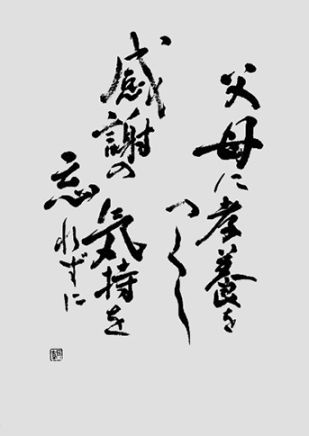 父母に孝養を
つくし
感謝の
気持を
忘れずに